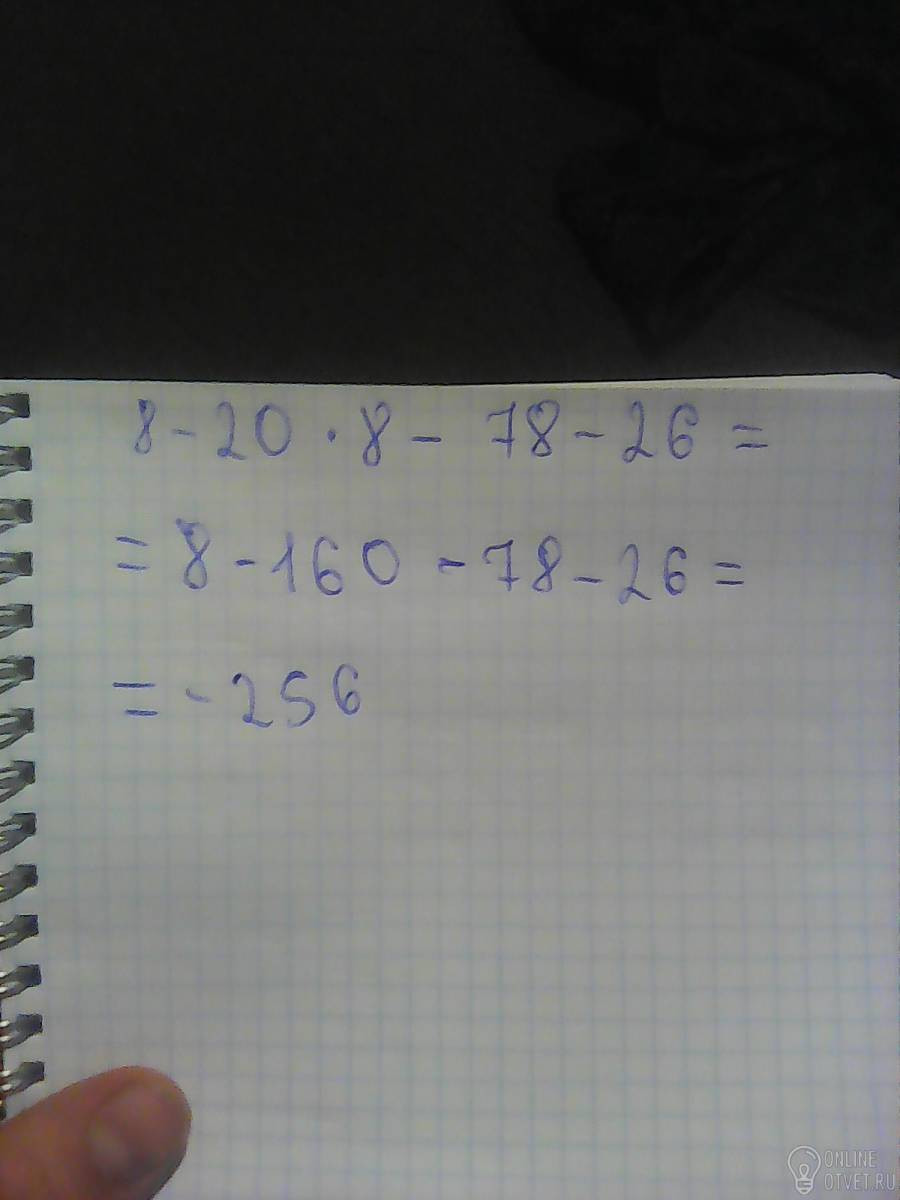 8 - 20 · 8 - 78 - 26 =
= 8 - 160 - 78 - 26 =
= - 256
ONLINE
OTVET.RU